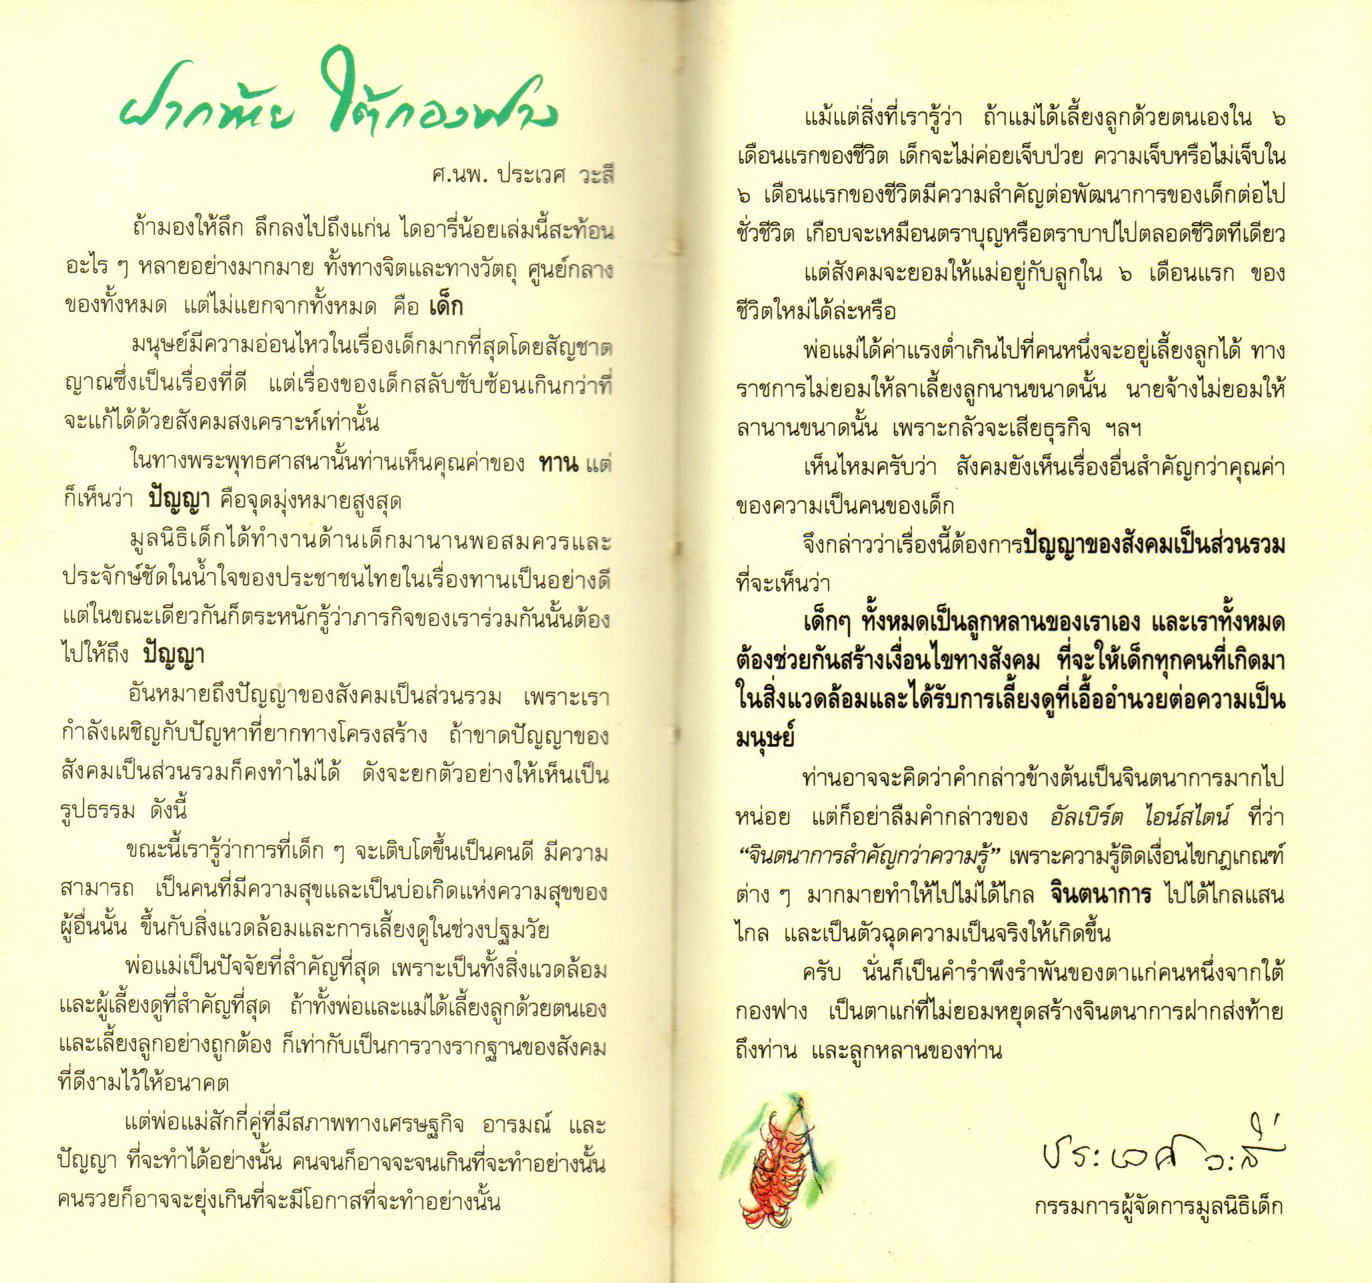 ฝากท้าย ใต้กองฟาง
ศ.นพ. ประเวศ วะสี
ถ้ามองให้ลึก ลึกลงไปถึงแก่น ไดอารี่น้อยเล่มนี้สะท้อน
อะไร ๆ หลายอย่างมากมาย ทั้งทางจิตและทางวัตถุ ศูนย์กลาง
ของทั้งหมด แต่ไม่แยกจากทั้งหมด คือ เด็ก
มนุษย์มีความอ่อนไหวในเรื่องเด็กมากที่สุดโดยสัญชาต
ญาณซึ่งเป็นเรื่องที่ดี แต่เรื่องของเด็กสลับซับซ้อนเกินกว่าที่
จะแก้ได้ด้วยสังคมสงเคราะห์เท่านั้น
ในทางพระพุทธศาสนานั้นท่านเห็นคุณค่าของ ทาน แต่
ก็เห็นว่า ปัญญา คือจุดมุ่งหมายสูงสุด
มูลนิธิเด็กได้ทำงานด้านเด็กมานานพอสมควรและ
ประจักษ์ชัดในน้ำใจของประชาชนไทยในเรื่องทานเป็นอย่างดี
แต่ในขณะเดียวกันก็ตระหนักรู้ว่าภารกิจของเราร่วมกันนั้นต้อง
ไปให้ถึง ปัญญา
อันหมายถึงปัญญาของสังคมเป็นส่วนรวม เพราะเรา
กำลังเผชิญกับปัญหาที่ยากทางโครงสร้าง ถ้าขาดปัญญาของ
สังคมเป็นส่วนรวมก็คงทำไม่ได้ ดังจะยกตัวอย่างให้เห็นเป็น
รูปธรรม ดังนี้
ขณะนี้เรารู้ว่าการที่เด็ก ๆ จะเติบโตขึ้นเป็นคนดี มีความ
สามารถ เป็นคนที่มีความสุขและเป็นบ่อเกิดแห่งความสุขของ
ผู้อื่นนั้น ขึ้นกับสิ่งแวดล้อมและการเลี้ยงดูในช่วงปฐมวัย
พ่อแม่เป็นปัจจัยที่สำคัญที่สุด เพราะเป็นทั้งสิ่งแวดล้อม
และผู้เลี้ยงดูที่สำคัญที่สุด ถ้าทั้งพ่อและแม่ได้เลี้ยงลูกด้วยตนเอง
และเลี้ยงลูกอย่างถูกต้อง ก็เท่ากับเป็นการวางรากฐานของสังคม
ที่ดีงามไว้ให้อนาคต
แต่พ่อแม่สักกี่คู่ที่มีสภาพทางเศรษฐกิจ อารมณ์ และ
ปัญญา ที่จะทำได้อย่างนั้น คนจนก็อาจจะจนเกินที่จะทำอย่างนั้น
คนรวยก็อาจจะยุ่งเกินที่จะมีโอกาสที่จะทำอย่างนั้น
แม้แต่สิ่งที่เรารู้ว่า ถ้าแม่ได้เลี้ยงลูกด้วยตนเองใน ๖
เดือนแรกของชีวิต เด็กจะไม่ค่อยเจ็บป่วย ความเจ็บหรือไม่เจ็บใน
๖ เดือนแรกของชีวิตมีความสำคัญต่อพัฒนาการของเด็กต่อไป
ชั่วชีวิต เกือบจะเหมือนตราบุญหรือตราบาปไปตลอดชีวิตทีเดียว
แต่สังคมจะยอมให้แม่อยู่กับลูกใน ๖ เดือนแรก ของ
ชีวิตใหม่ได้ล่ะหรือ
พ่อแม่ได้ค่าแรงต่ำเกินไปที่คนหนึ่งจะอยู่เลี้ยงลูกได้ ทาง
ราชการไม่ยอมให้ลาเลี้ยงลูกนานขนาดนั้น นายจ้างไม่ยอมให้
ลานานขนาดนั้น เพราะกลัวจะเสียธุรกิจ ฯลฯ
เห็นไหมครับว่า สังคมยังเห็นเรื่องอื่นสำคัญกว่าคุณค่า
ของความเป็นคนของเด็ก
จึงกล่าวว่าเรื่องนี้ต้องการปัญญาของสังคมเป็นส่วนรวม
ที่จะเห็นว่า
เด็กๆ ทั้งหมดเป็นลูกหลานของเราเอง และเราทั้งหมด
ต้องช่วยกันสร้างเงื่อนไขทางสังคม ที่จะให้เด็กทุกคนที่เกิดมา
ในสิ่งแวดล้อมและได้รับการเลี้ยงดูที่เอื้ออำนวยต่อความเป็น
มนุษย์
ท่านอาจจะคิดว่าคำกล่าวข้างต้นเป็นจินตนาการมากไป
หน่อย แต่ก็อย่าลืมคำกล่าวของ อัลเบิร์ต ไอน์สไตน์ ที่ว่า
“จินตนาการสำคัญกว่าความรู้” เพราะความรู้ติดเงื่อนไขกฎเกณฑ์
ต่าง ๆ มากมายทำให้ไปไม่ได้ไกล จินตนาการ ไปได้ไกลแสน
ไกล และเป็นตัวฉุดความเป็นจริงให้เกิดขึ้น
ครับ นั่นก็เป็นคำรำพึงรำพันของตาแก่คนหนึ่งจากใต้
กองฟาง เป็นตาแก่ที่ไม่ยอมหยุดสร้างจินตนาการฝากส่งท้าย
ถึงท่าน และลูกหลานของท่าน
ประเวศ วะสี
กรรมการผู้จัดการมูลนิธิเด็ก